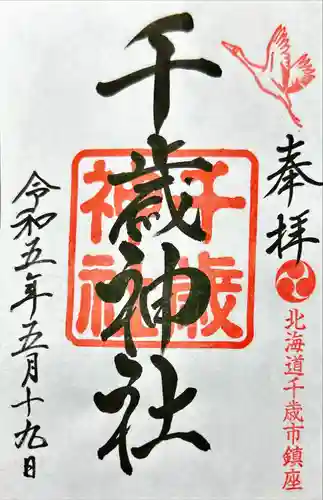 奉拝
北海道千歳市鎮座
千歳神社
千歳神社
令和五年五月十九日